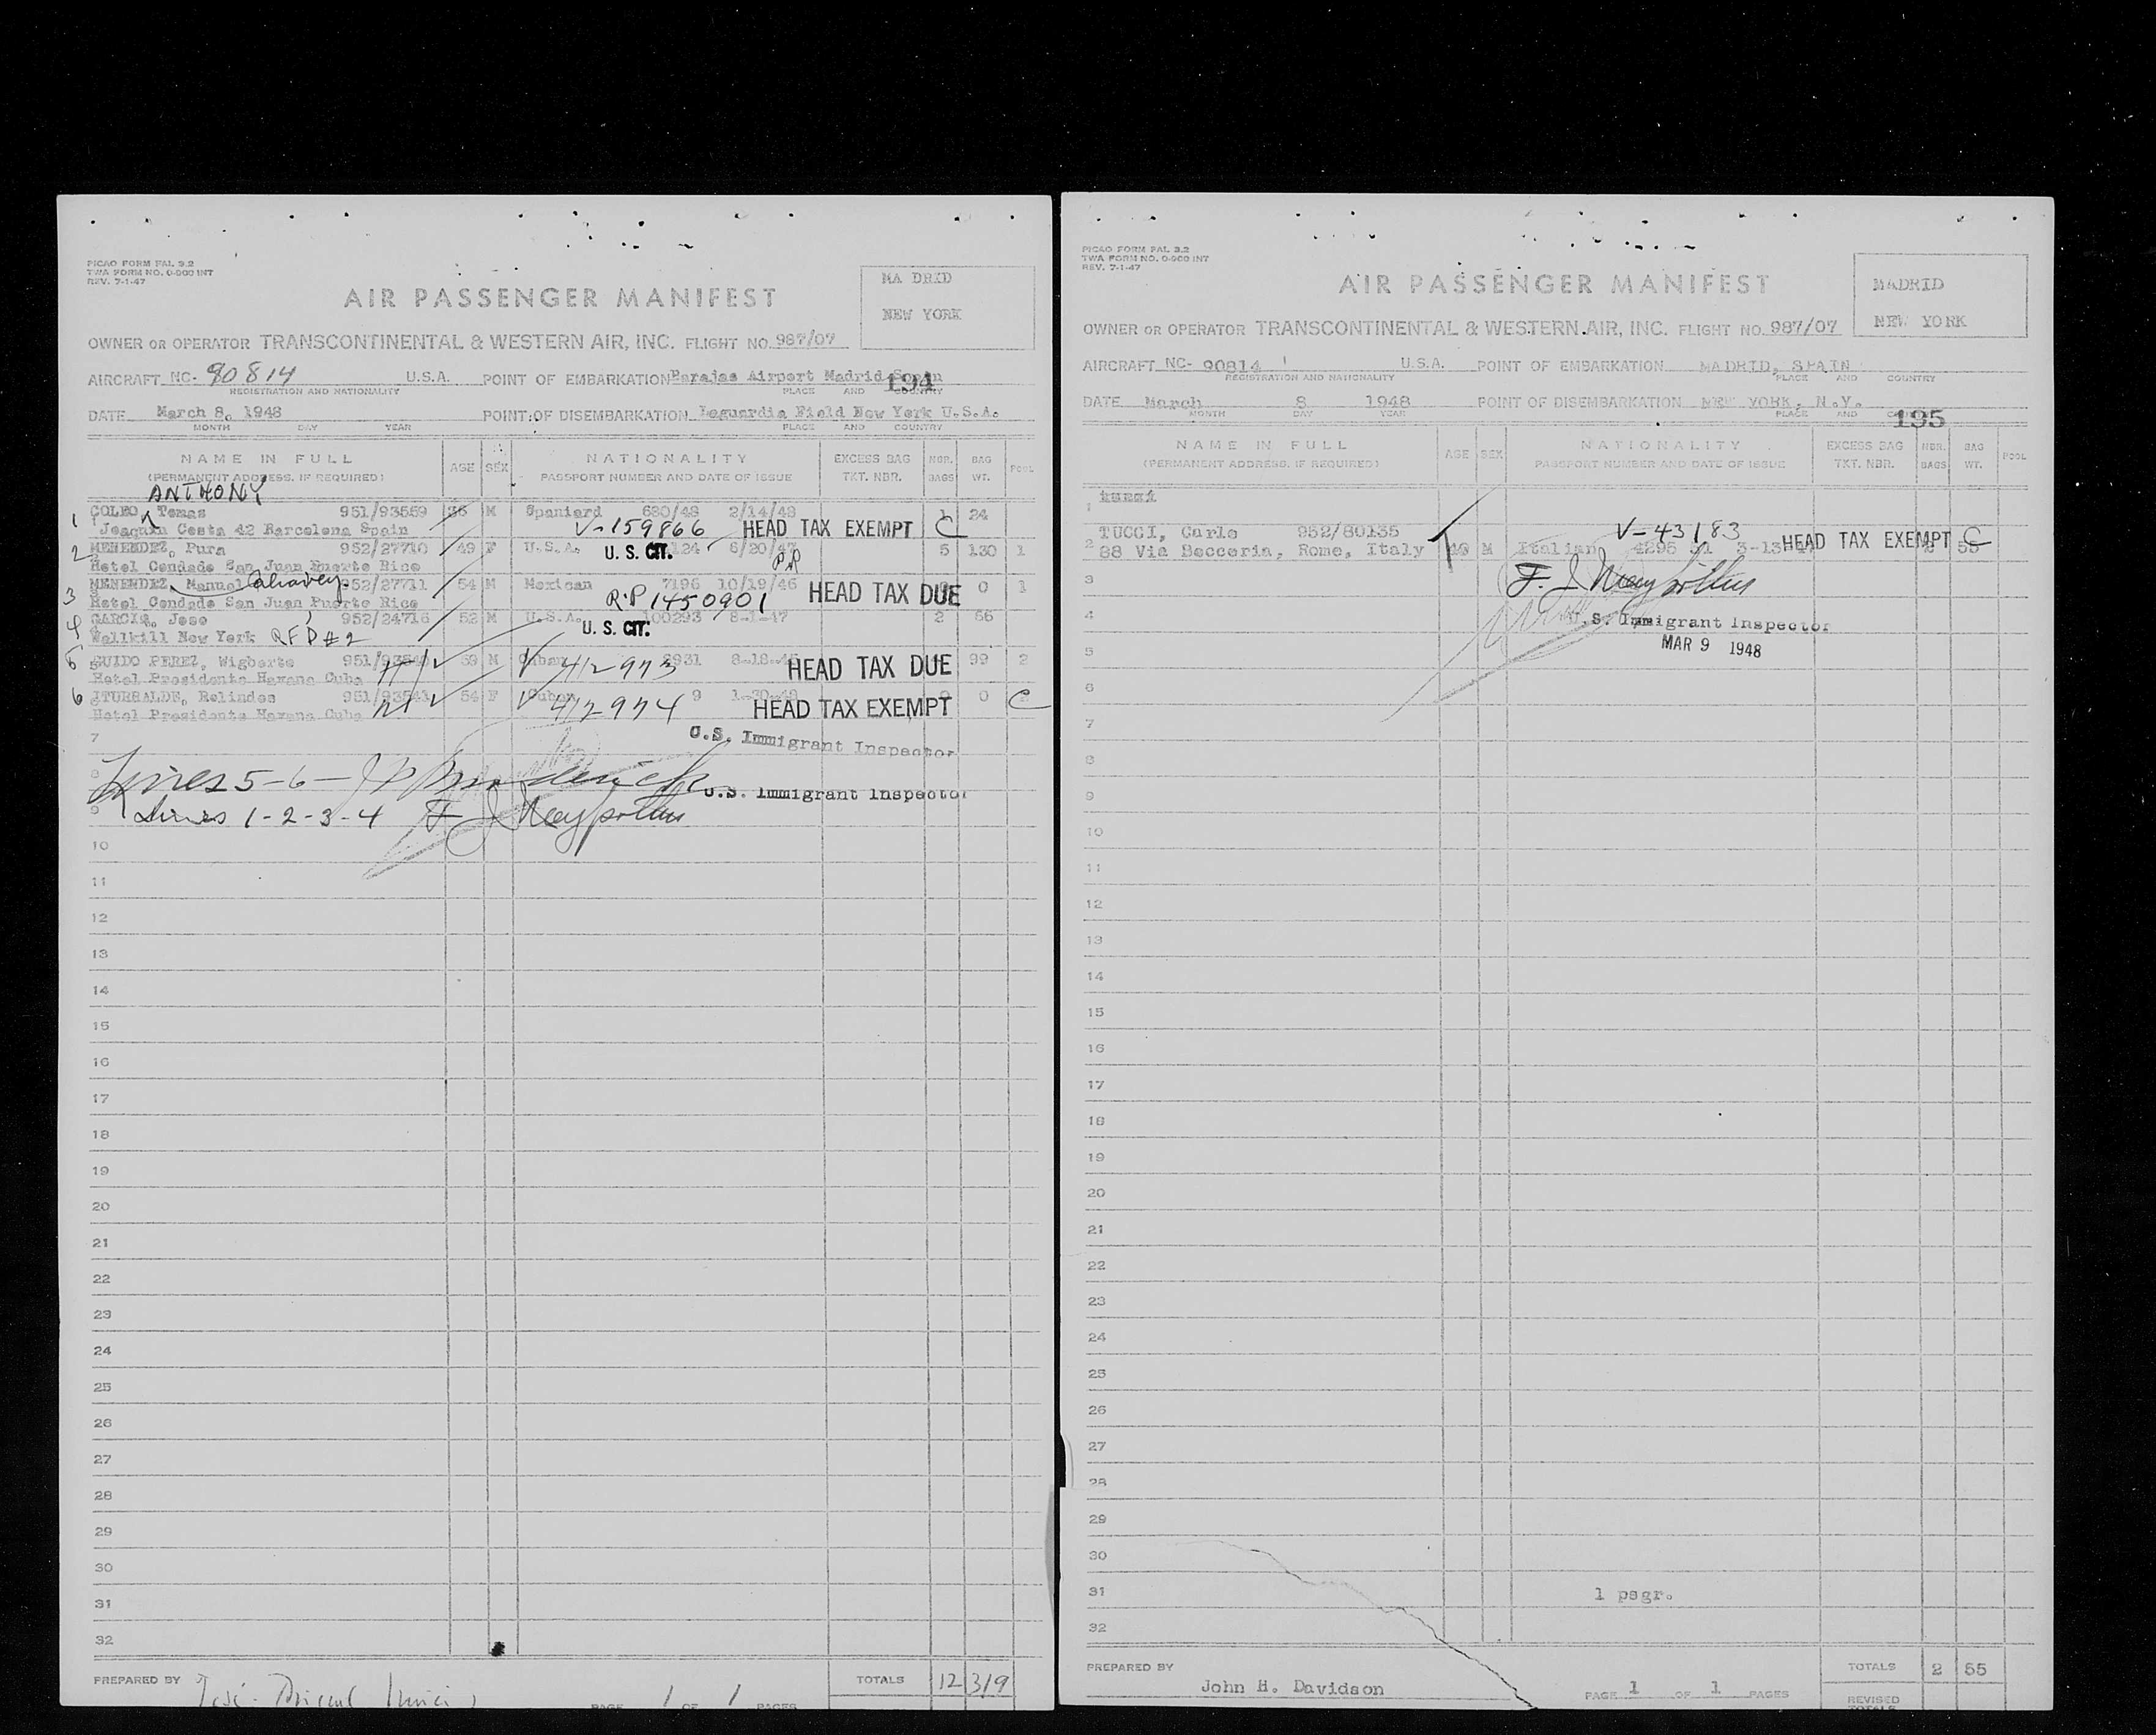 PICAO FORM PAL 3.2
TWA FORM NO. 0-900 INT
REV. 7-1-47
AIR PASSENGER MANIFEST
MA DRID
NEW YORK
OWNER OR OPERATOR TRANSCONTINENTAL & WESTERN AIR, INC. FLIGHT NO. 987/07
AIRCRAFT NC- 90814 U.S.A. POINT OF EMBARKATION Barajas Airport Madrid Spain
REGISTRATION AND NATIONALITY PLACE AND COUNTRY
194
DATE March 8, 1948 POINT OF DISEMBARKATION Laguardia Field New York U.S.A.
MONTH DAY YEAR PLACE AND COUNTRY
NAME IN FULL AGE SEX NATIONALITY EXCESS BAG NBR. BAG POOL
(PERMANENT ADDRESS, IF REQUIRED) PASSPORT NUMBER AND DATE OF ISSUE TKT. NBR. BAGS WT.
ANTHONY
1 Tomas 951/93559 36 M Spaniard 680/48 2/14/48 1 24
Joaquin Costa 42 Barcelona Spain V-159866 HEAD TAX EXEMPT C
2 MENENDEZ, Pura 952/27710 49 F U.S.A. U. S. CIT. 124 6/20/47 5 130 1
Hotel Condado San Juan Puerto Rico
3 MENENDEZ Manuel 952/27711 54 M Mexican 7196 10/19/46 HEAD TAX DUE 0 1
Hotel Condado San Juan Puerto Rico R.P 1450901
4 GARCIA, Jose 952/24716 52 M U.S.A. 100293 8-1-47 2 66
Wallkill New York RFD #2 U. S. CIT.
5 GUIDO PEREZ, Wigberto 59 M Cuban 8931 8-18- HEAD TAX DUE 99 2
Hotel Presidente Havana Cuba V 412973
6 ITURRALDE, Relindes 951/93541 54 F Cuban 9 1-30-48 0
Hotel Presidente Havana Cuba V 412974 HEAD TAX EXEMPT C
7 U.S. Immigrant Inspector
8 Lines 5-6 - U.S. Immigrant Inspector
9 Lines 1-2-3-4 F J
10
11
12
13
14
15
16
17
18
19
20
21
22
23
24
25
26
27
28
29
30
31
32
PREPARED BY TOTALS 12 319
PAGE 1 OF 1 PAGES
PICAO FORM PAL 3.2
TWA FORM NO. 0-900 INT
REV. 7-1-47
AIR PASSENGER MANIFEST
MADRID
NEW YORK
OWNER OR OPERATOR TRANSCONTINENTAL & WESTERN AIR, INC. FLIGHT NO. 987/07
AIRCRAFT NC- 90814 U.S.A. POINT OF EMBARKATION MADRID, SPAIN
REGISTRATION AND NATIONALITY PLACE AND COUNTRY
DATE March 8 1948 POINT OF DISEMBARKATION NEW YORK, N.Y.
MONTH DAY YEAR PLACE AND
195
NAME IN FULL AGE SEX NATIONALITY EXCESS BAG NBR. BAG POOL
(PERMANENT ADDRESS, IF REQUIRED) PASSPORT NUMBER AND DATE OF ISSUE TKT. NBR. BAGS WT.
1
TUCCI, Carlo 952/80135 V-43183 HEAD TAX EXEMPT C
2 88 Via Beccaria, Rome, Italy M Italian 4296 3-13- 55
3 F. J
4 U.S. Immigrant Inspector
5 MAR 9 1948
6
7
8
9
10
11
12
13
14
15
16
17
18
19
20
21
22
23
24
25
26
27
28
29
30
31 1 psgr.
32
PREPARED BY John H. Davidson TOTALS 2 55
PAGE 1 OF 1 PAGES REVISED TOTALS